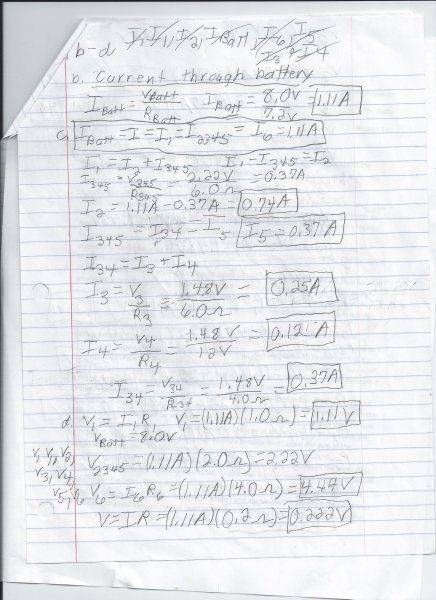 b-d. I, I1, I2, IBatt, I6, I5
I3 & I4
b. Current through battery
IBatt = VBatt/RBatt IBatt = 8.0V/7.2Ω = 1.11A
c. IBatt = I = I1 = I2345 = I6 = 1.11A
I1 = I2 + I345 I1 - I345 = I2
I345 = V345/R345 = 2.22V/6.0Ω = 0.37A
I2 = 1.11A - 0.37A = 0.74A
I345 = I34 = I5 I5 = 0.37A
I34 = I3 + I4
I3 = V3/R3 = 1.48V/6.0Ω = 0.25A
I4 = V4/R4 = 1.48V/12V = 0.121A
I34 = V34/R34 = 1.48V/4.0Ω = 0.37A
d. V1 = I1R1 V1 = (1.11A)(1.0Ω) = 1.11V
VBatt = 8.0V
V, V1, V2, V3, V4, V5, V6
V2345 = (1.11A)(2.0Ω) = 2.22V
V6 = I6R6 = (1.11A)(4.0Ω) = 4.44V
V = IR = (1.11A)(0.2Ω) = 0.222V